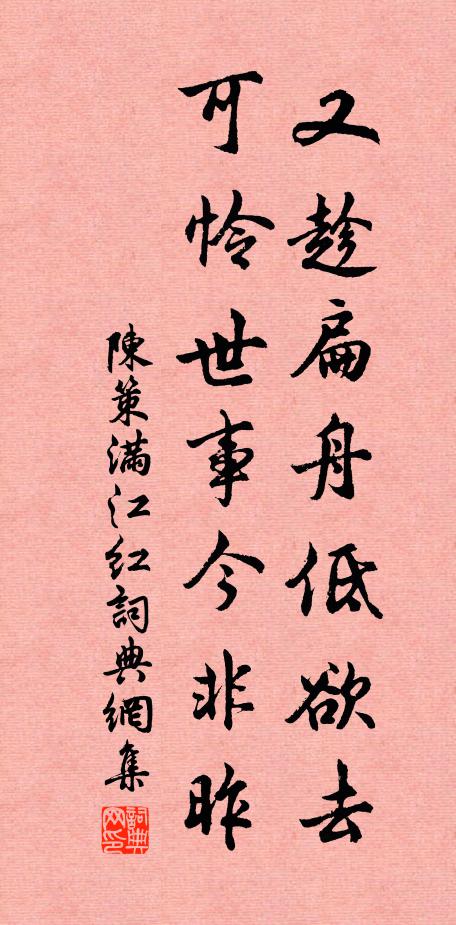 又趁扁舟低欲去
可怜世事今非昨
陳策满江红詞典網集
詞典网印